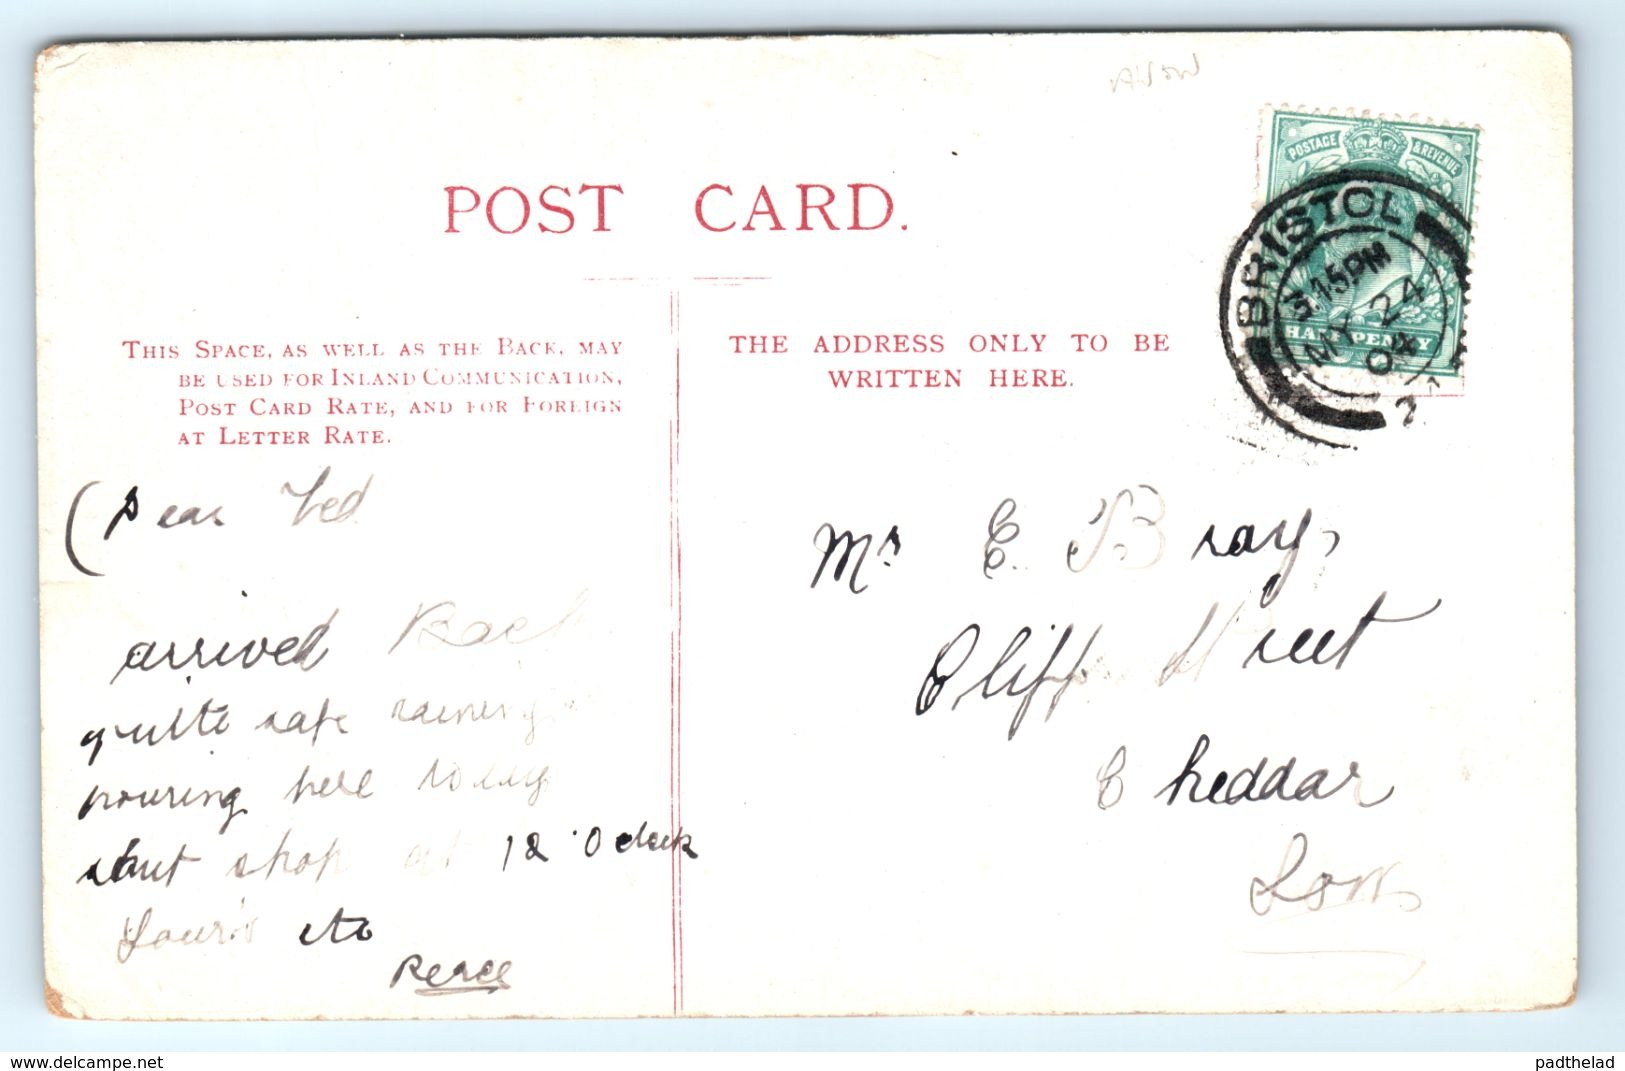 AVON
POST CARD.
POSTAGE & REVENUE
BRISTOL
3.15 PM
MY 24
04
HALFPENNY
THIS SPACE, AS WELL AS THE BACK, MAY
BE USED FOR INLAND COMMUNICATION,
POST CARD RATE, AND FOR FOREIGN
AT LETTER RATE.
THE ADDRESS ONLY TO BE
WRITTEN HERE.
(Dear Ted
arrived Back
quite safe raining
pouring here today
shut shop at 12 O'clock
Your's etc
Perce
Mr E. Bray,
Cliff Street
Cheddar
Som
delcampe.net
padthelad